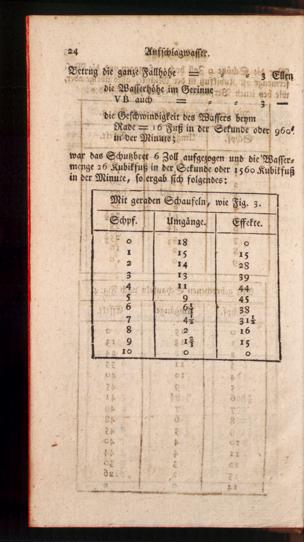 24 Aufschlagwasser.
Betrug die ganze Fallhöhe = " 3 Ellen
die Wasserhöhe im Gerinne
V B auch = " 3 —
die Geschwindigkeit des Wassers beym
Rade = 16 Fuß in der Sekunde oder 960'
in der Minute;
war das Schutzbret 6 Zoll aufgezogen und die Wasser-
menge 26 Kubikfuß in der Sekunde oder 1560 Kubikfuß
in der Minute, so ergab sich folgendes:
Mit geraden Schaufeln, wie Fig. 3.
Schpf. Umgänge. Effekte.
0 18 0
1 15 15
2 14 28
3 13 39
4 11 44
5 9 45
6 6⅓ 38
7 4½ 31½
8 2 16
9 1⅔ 15
10 0 0